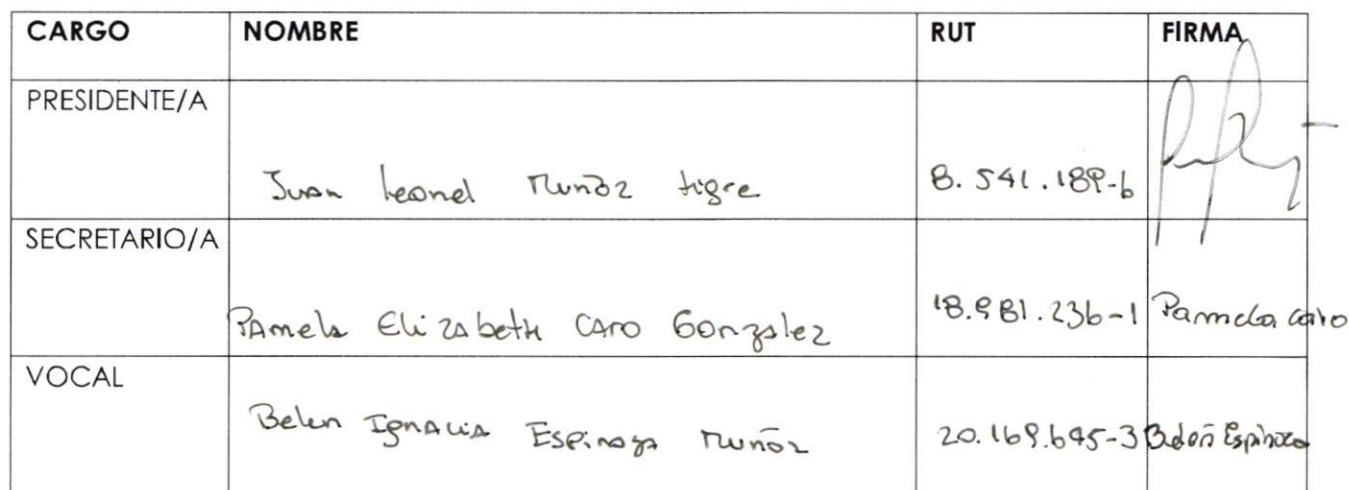 CARGO NOMBRE RUT FIRMA
PRESIDENTE/A
Juan Leonel Muñoz tigre 8.541.189-6
SECRETARIO/A
PAmela Elizabeth CAro Gonzalez 18.981.236-1 Pamela caro
VOCAL
Belen IgnAciA Espinoza Muñoz 20.169.645-3 Belén Espinoza